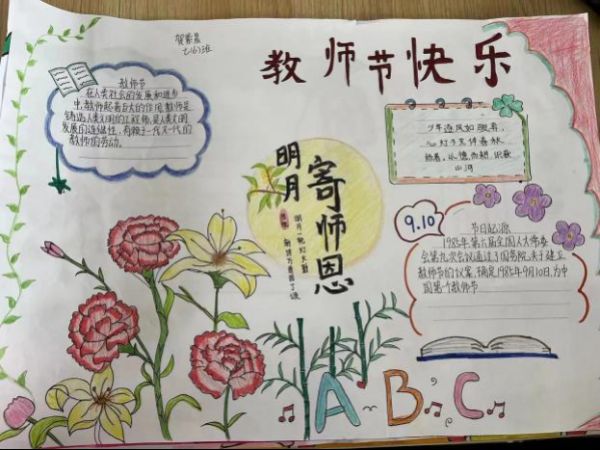 七(6)班
教师节快乐
教师节
在人类社会的发展和进步
中,教师起着巨大的作用.教师是
铸造人类文明的工程师,是人类文明
发展的连续性,有赖于一代又一代的
教师的劳动。
少年遇风如朗君,
明月
寄师恩
9.10
节日起源
1985年,第六届全国人大常委
会第九次会议通过了国务院关于建立
教师节的议案,确定1985年9月10日,为中
国第一个教师节
A B C